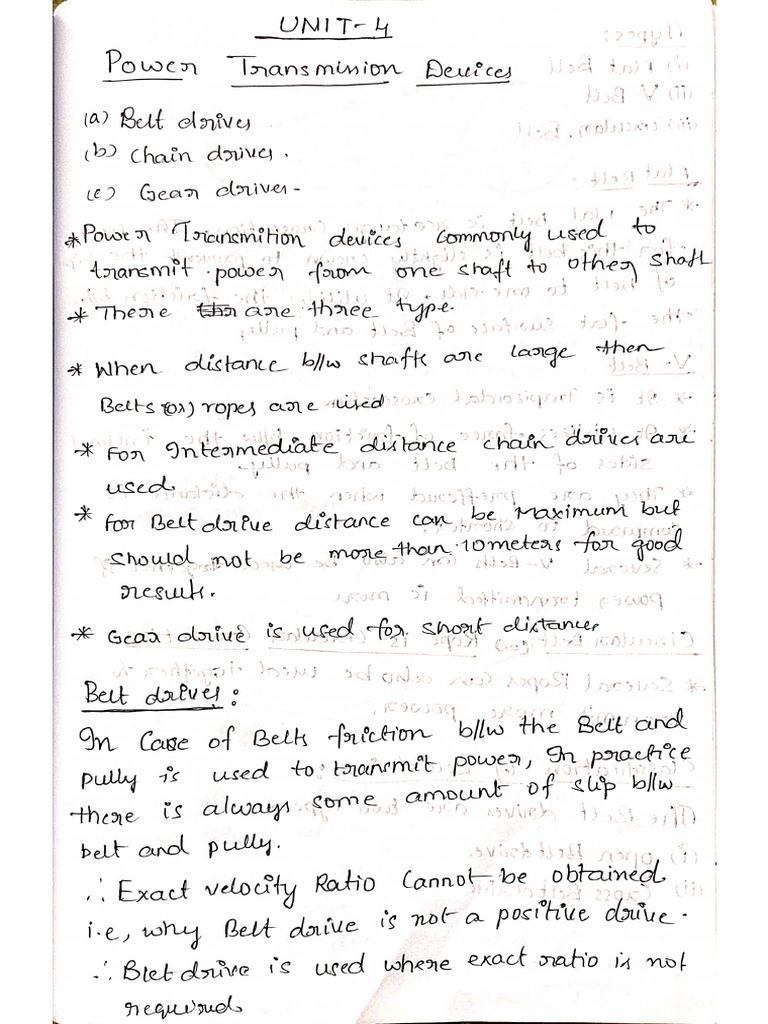 UNIT-4
Power Transmission Devices
(a) Belt drives
(b) Chain drives.
(c) Gear drives-
*Power Transmition devices commonly used to
transmit power from one shaft to other shaft
* There are three type.
* When distance b//w shafts are large then
Belts (or) ropes are used
* For Intermediate distance chain drives are
used.
* for Belt drive distance can be Maximum but
should not be more than 10meters for good
result.
* Gear drive is used for short distances
Belt drives:
In Case of Belts friction b//w the Belt and
pully is used to transmit power, In practice
there is always some amount of slip b//w
belt and pully.
∴ Exact velocity Ratio Cannot be obtained
i.e, why Belt drive is not a positive drive.
∴ Blet drive is used where exact ratio is not
required